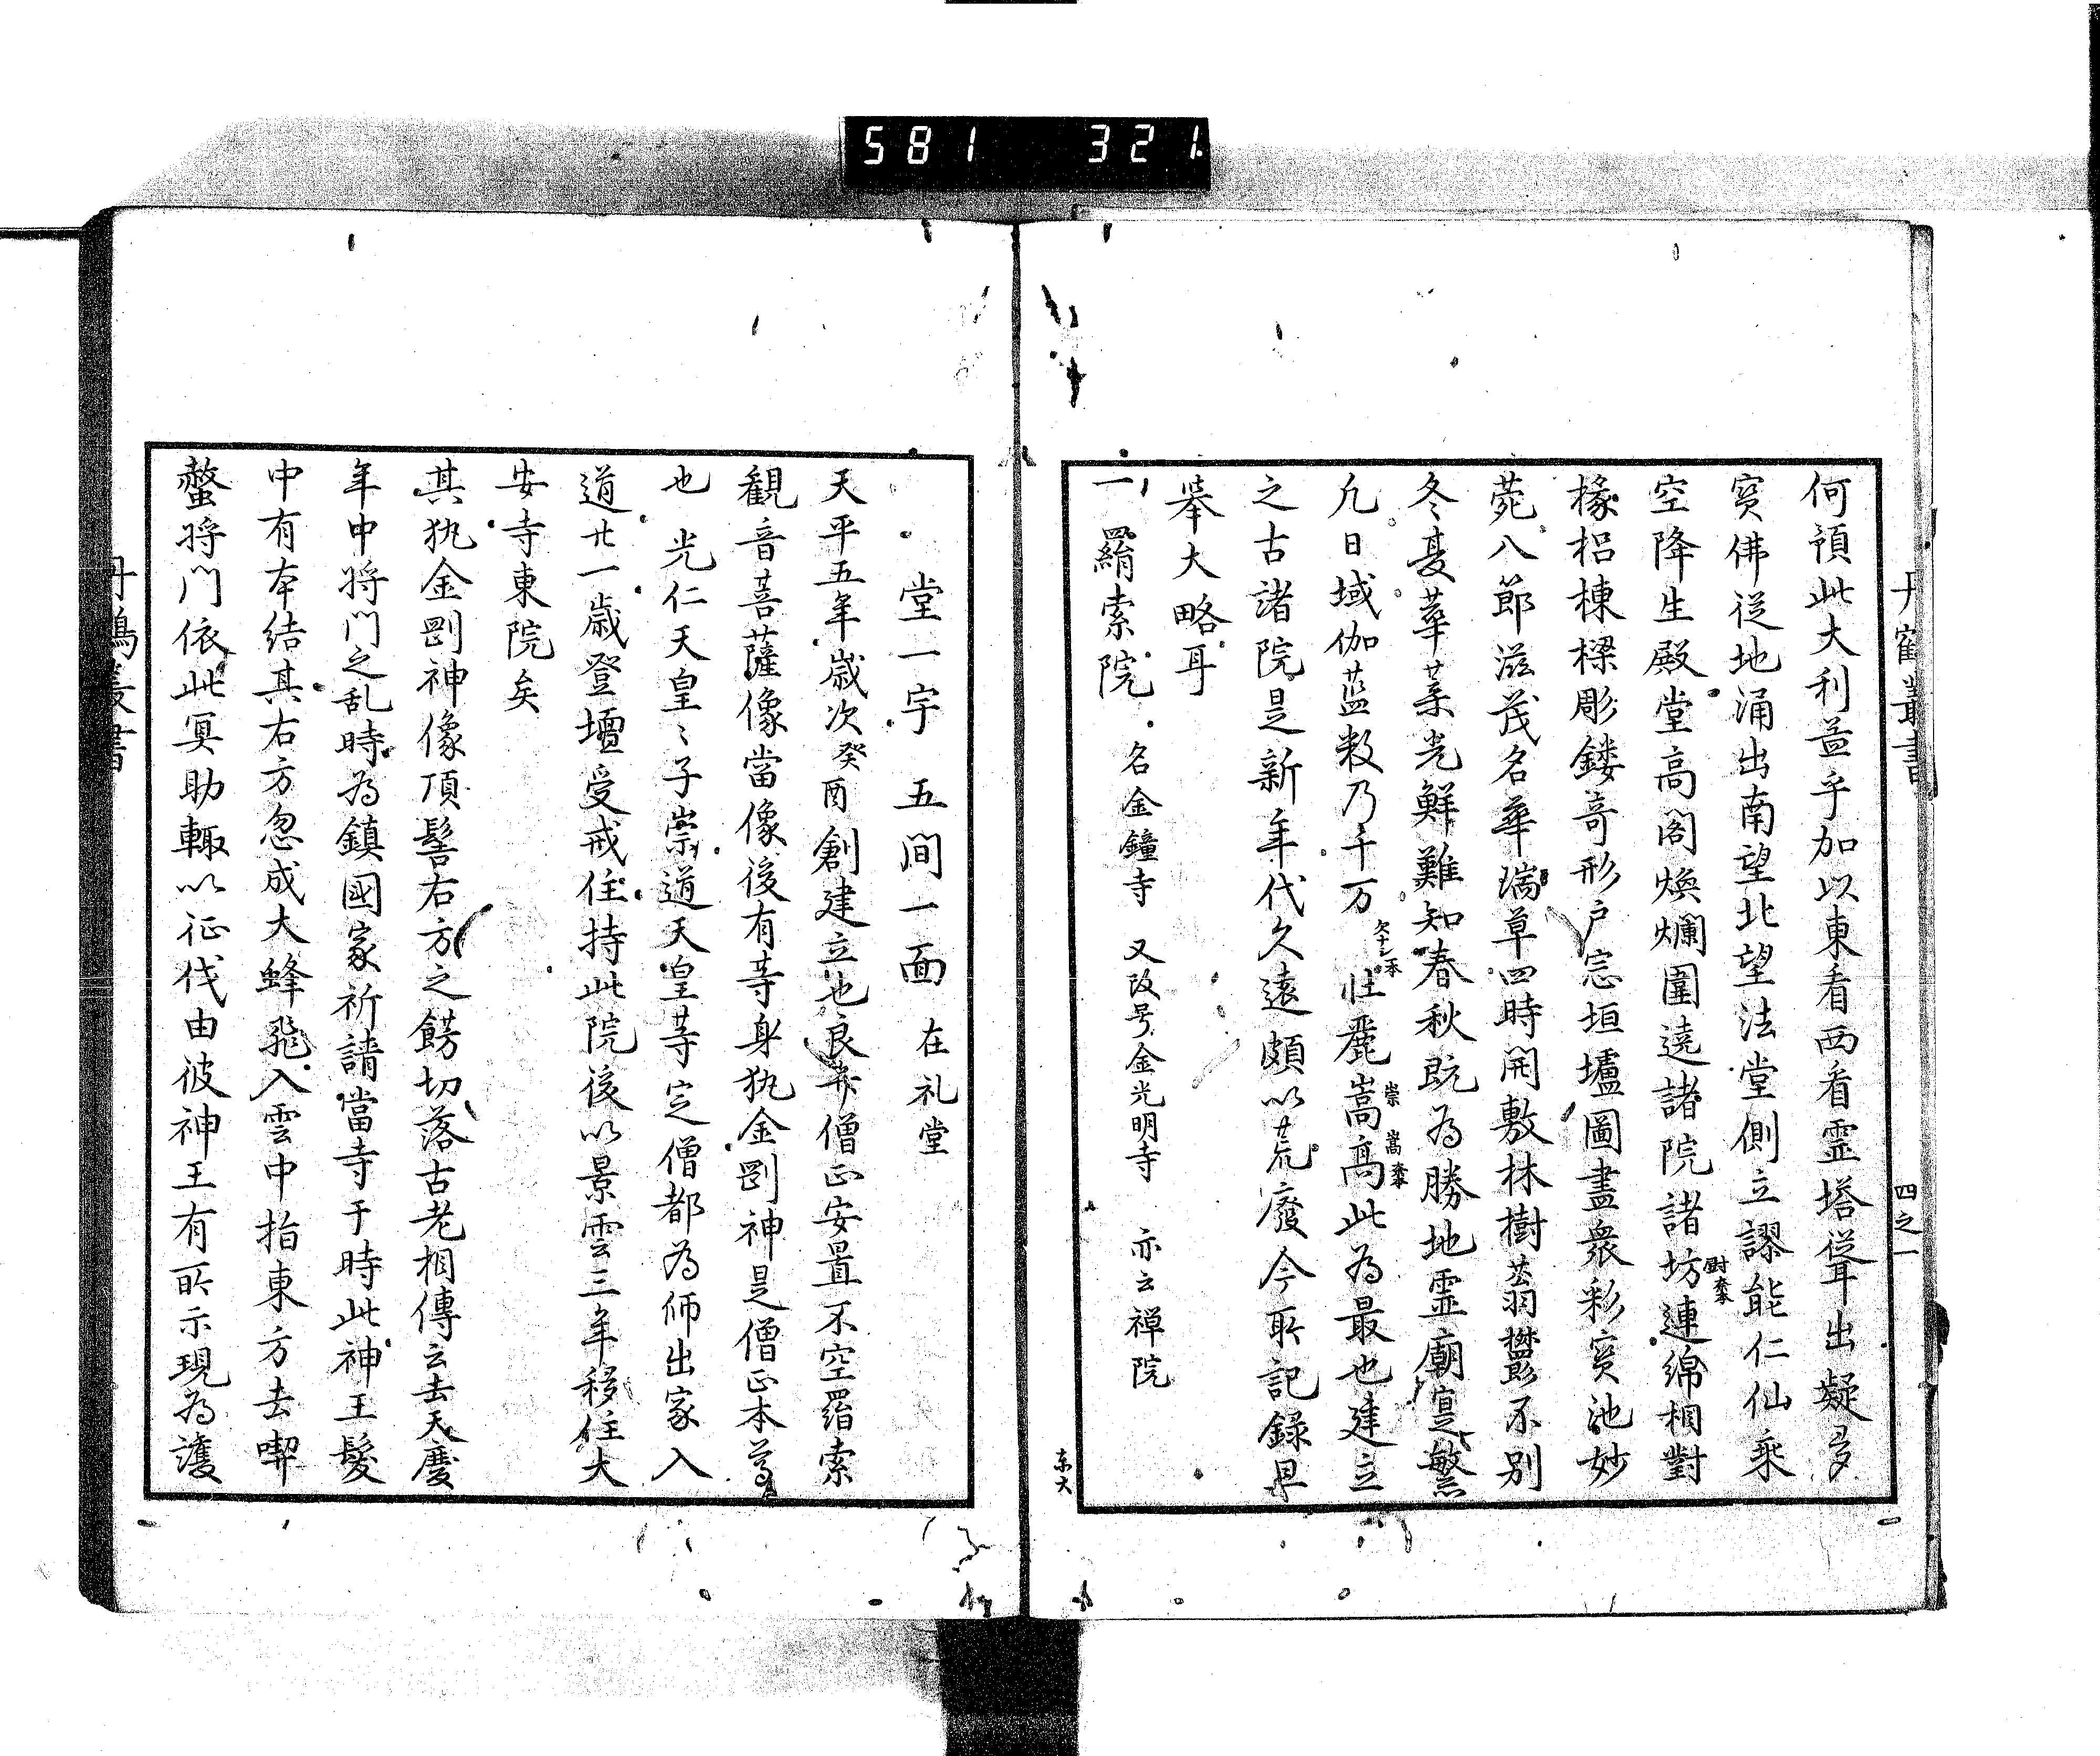 581 321
丹鶴叢書
四之一
何預此大利益乎加以東看西看霊塔聳出凝多
寳佛従地涌出南望北望法堂側立謬能仁仙乗
空降生殿堂高閣煥爛圍遶諸院諸坊連綿相對
橡梠棟樑彫鏤奇形戸窓垣壚圖畫衆彩寳池妙
菀八節滋茂名華瑞草四時開敷林樹蓊欝不別
冬夏華菓光鮮難知春秋既為勝地霊廟寔繁
凢日域伽藍数乃千万 欠ナシ本 壮麗嵩高此為最也建立
之古諸院是新年代久遠頗以荒廢今取記録早
挙大略耳
一 羂索院 名金鐘寺 又改号金光明寺 亦云禅院
东大
堂一宇 五間一面 在礼堂
天平五年歳次癸酉創建立也良弁僧正安置不空羂索
觀音菩薩像當像後有等身執金剛神是僧正本尊
也 光仁天皇〻子崇道天皇等定僧都為師出家入
道廿一歳登壇受戒住持此院後以景雲三年移住大
安寺東院矣
其執金剛神像頂髻右方之餝切落古老相傳云去天慶
年中将門之乱時為鎮國家祈請當寺于時此神王髪
中有本結其右方忽成大蜂飛入雲中指東方去喫
螫将門依此冥助輙以征伐由彼神王有所示現為護
丹鶴叢書